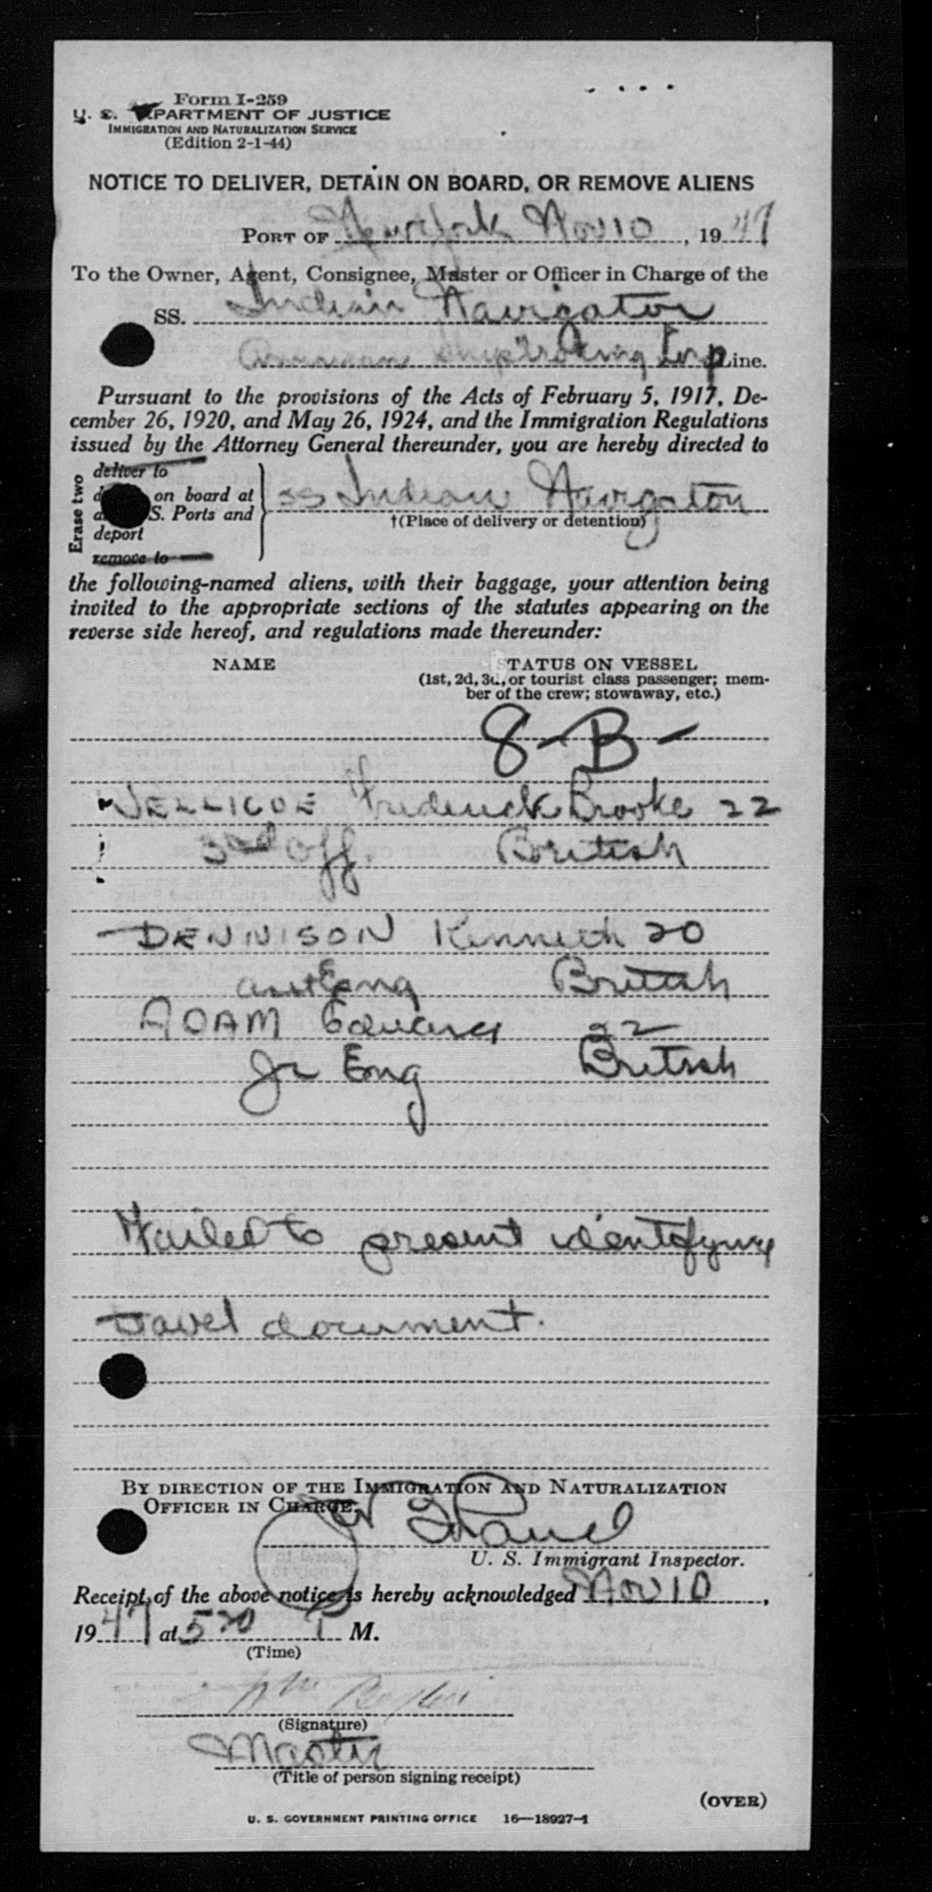 Form I-259
U. S. DEPARTMENT OF JUSTICE
IMMIGRATION AND NATURALIZATION SERVICE
(Edition 2-1-44)
NOTICE TO DELIVER, DETAIN ON BOARD, OR REMOVE ALIENS
PORT OF New York Nov 10, 1947
To the Owner, Agent, Consignee, Master or Officer in Charge of the
SS. Indian Navigator
American Line.
Pursuant to the provisions of the Acts of February 5, 1917, De-
cember 26, 1920, and May 26, 1924, and the Immigration Regulations
issued by the Attorney General thereunder, you are hereby directed to
Erase two
deliver to
on board at
S. Ports and
deport
remove to
SS Indian Navigator
†(Place of delivery or detention)
the following-named aliens, with their baggage, your attention being
invited to the appropriate sections of the statutes appearing on the
reverse side hereof, and regulations made thereunder:
NAME STATUS ON VESSEL
(1st, 2d, 3d, or tourist class passenger; mem-
ber of the crew; stowaway, etc.)
8-B-
JELLICOE Frederick Brooke 22
3rd Off. British
DENNISON Kenneth 20
asst Eng British
ADAM Edward 22
Jr Eng British
Failed to present identifying
travel document.
BY DIRECTION OF THE IMMIGRATION AND NATURALIZATION
OFFICER IN CHARGE.
U. S. Immigrant Inspector.
Receipt of the above notice is hereby acknowledged Nov 10,
1947 at 5 20 P M.
(Time)
(Signature)
Master
(Title of person signing receipt)
(OVER)
U. S. GOVERNMENT PRINTING OFFICE 16—18927-1